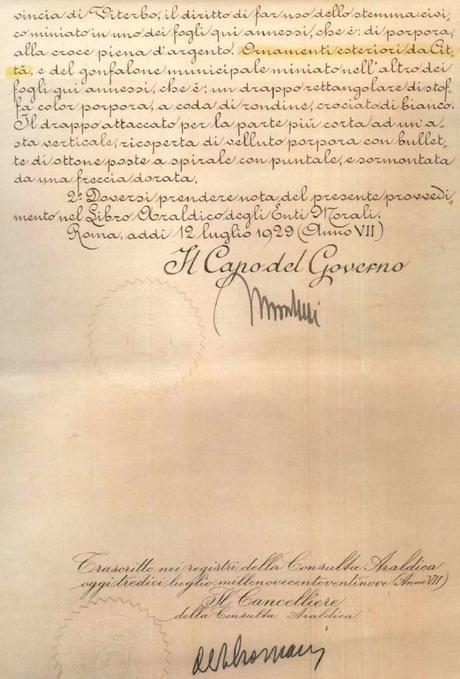 vincia di Viterbo, il diritto di far uso dello stemma civi=
co miniato in uno dei fogli qui annessi, che è: di porpora,
alla croce piena d'argento. Ornamenti esteriori da Cit=
tà, e del gonfalone municipale miniato nell'altro dei
fogli qui annessi, che è; un drappo rettangolare di stof=
fa color porpora, a coda di rondine, crociato di bianco.
Il drappo attaccato per la parte più corta ad un'a=
sta verticale, ricoperta di velluto porpora con bullet=
te di ottone poste a spirale con puntale, e sormontata
da una freccia dorata.
2° Doversi prendere nota del presente provvedi=
mento nel Libro Araldico degli Enti Morali.
Roma, addì 12 luglio 1929 (Anno VII)
Il Capo del Governo
Mussolini
Trascritto nei registri della Consulta Araldica
oggi tredici luglio millenovecentoventinove (Anno VII)
Il Cancelliere
della Consulta Araldica